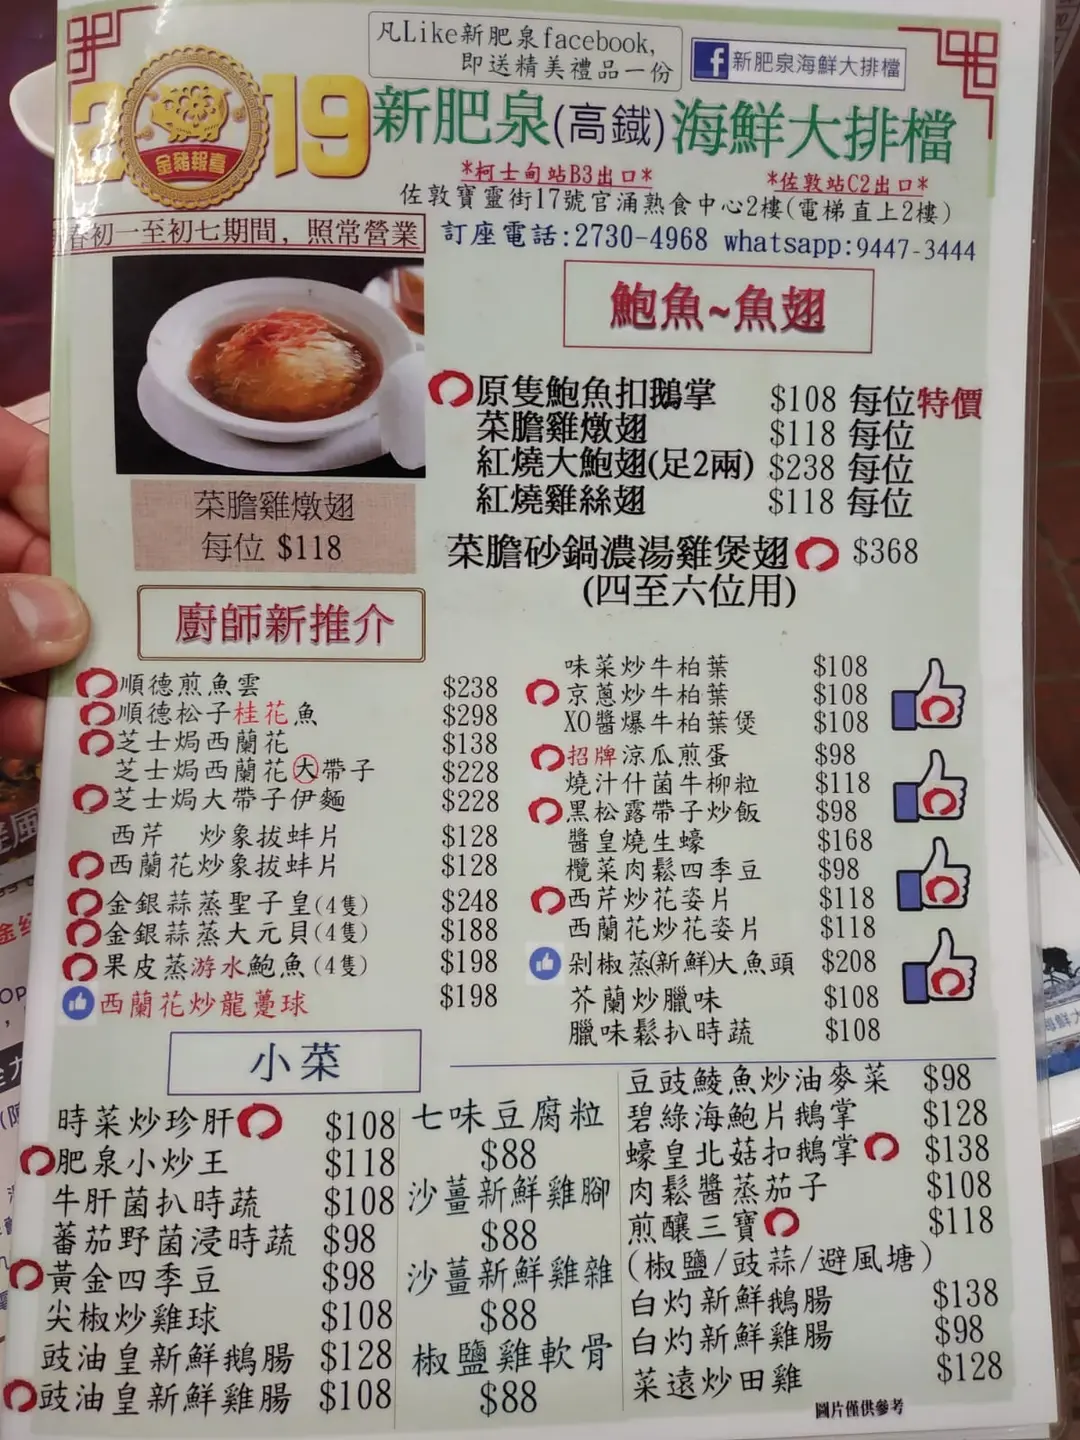 凡Like新肥泉facebook,
即送精美禮品一份
f 新肥泉海鮮大排檔
2019
金豬報喜
新肥泉(高鐵)海鮮大排檔
*柯士甸站B3出口*
*佐敦站C2出口*
佐敦寶靈街17號官涌熟食中心2樓(電梯直上2樓)
春初一至初七期間, 照常營業
訂座電話:2730-4968 whatsapp:9447-3444
鮑魚~魚翅
原隻鮑魚扣鵝掌 $108 每位特價
菜膽雞燉翅 $118 每位
紅燒大鮑翅(足2兩) $238 每位
紅燒雞絲翅 $118 每位
菜膽砂鍋濃湯雞煲翅 $368
(四至六位用)
菜膽雞燉翅
每位 $118
廚師新推介
順德煎魚雲 $238
順德松子桂花魚 $298
芝士焗西蘭花 $138
芝士焗西蘭花大帶子 $228
芝士焗大帶子伊麵 $228
西芹 炒象拔蚌片 $128
西蘭花炒象拔蚌片 $128
金銀蒜蒸聖子皇(4隻) $248
金銀蒜蒸大元貝(4隻) $188
果皮蒸游水鮑魚(4隻) $198
西蘭花炒龍躉球 $198
味菜炒牛柏葉 $108
京蔥炒牛柏葉 $108
XO醬爆牛柏葉煲 $108
招牌涼瓜煎蛋 $98
燒汁什菌牛柳粒 $118
黑松露帶子炒飯 $98
醬皇燒生蠔 $168
欖菜肉鬆四季豆 $98
西芹炒花姿片 $118
西蘭花炒花姿片 $118
剁椒蒸(新鮮)大魚頭 $208
芥蘭炒臘味 $108
臘味鬆扒時蔬 $108
小菜
時菜炒珍肝 $108
肥泉小炒王 $118
牛肝菌扒時蔬 $108
蕃茄野菌浸時蔬 $98
黃金四季豆 $98
尖椒炒雞球 $108
豉油皇新鮮鵝腸 $128
豉油皇新鮮雞腸 $108
七味豆腐粒
$88
沙薑新鮮雞腳
$88
沙薑新鮮雞雜
$88
椒鹽雞軟骨
$88
豆豉鯪魚炒油麥菜 $98
碧綠海鮑片鵝掌 $128
蠔皇北菇扣鵝掌 $138
肉鬆醬蒸茄子 $108
煎釀三寶 $118
(椒鹽/豉蒜/避風塘)
白灼新鮮鵝腸 $138
白灼新鮮雞腸 $98
菜遠炒田雞 $128
圖片僅供參考